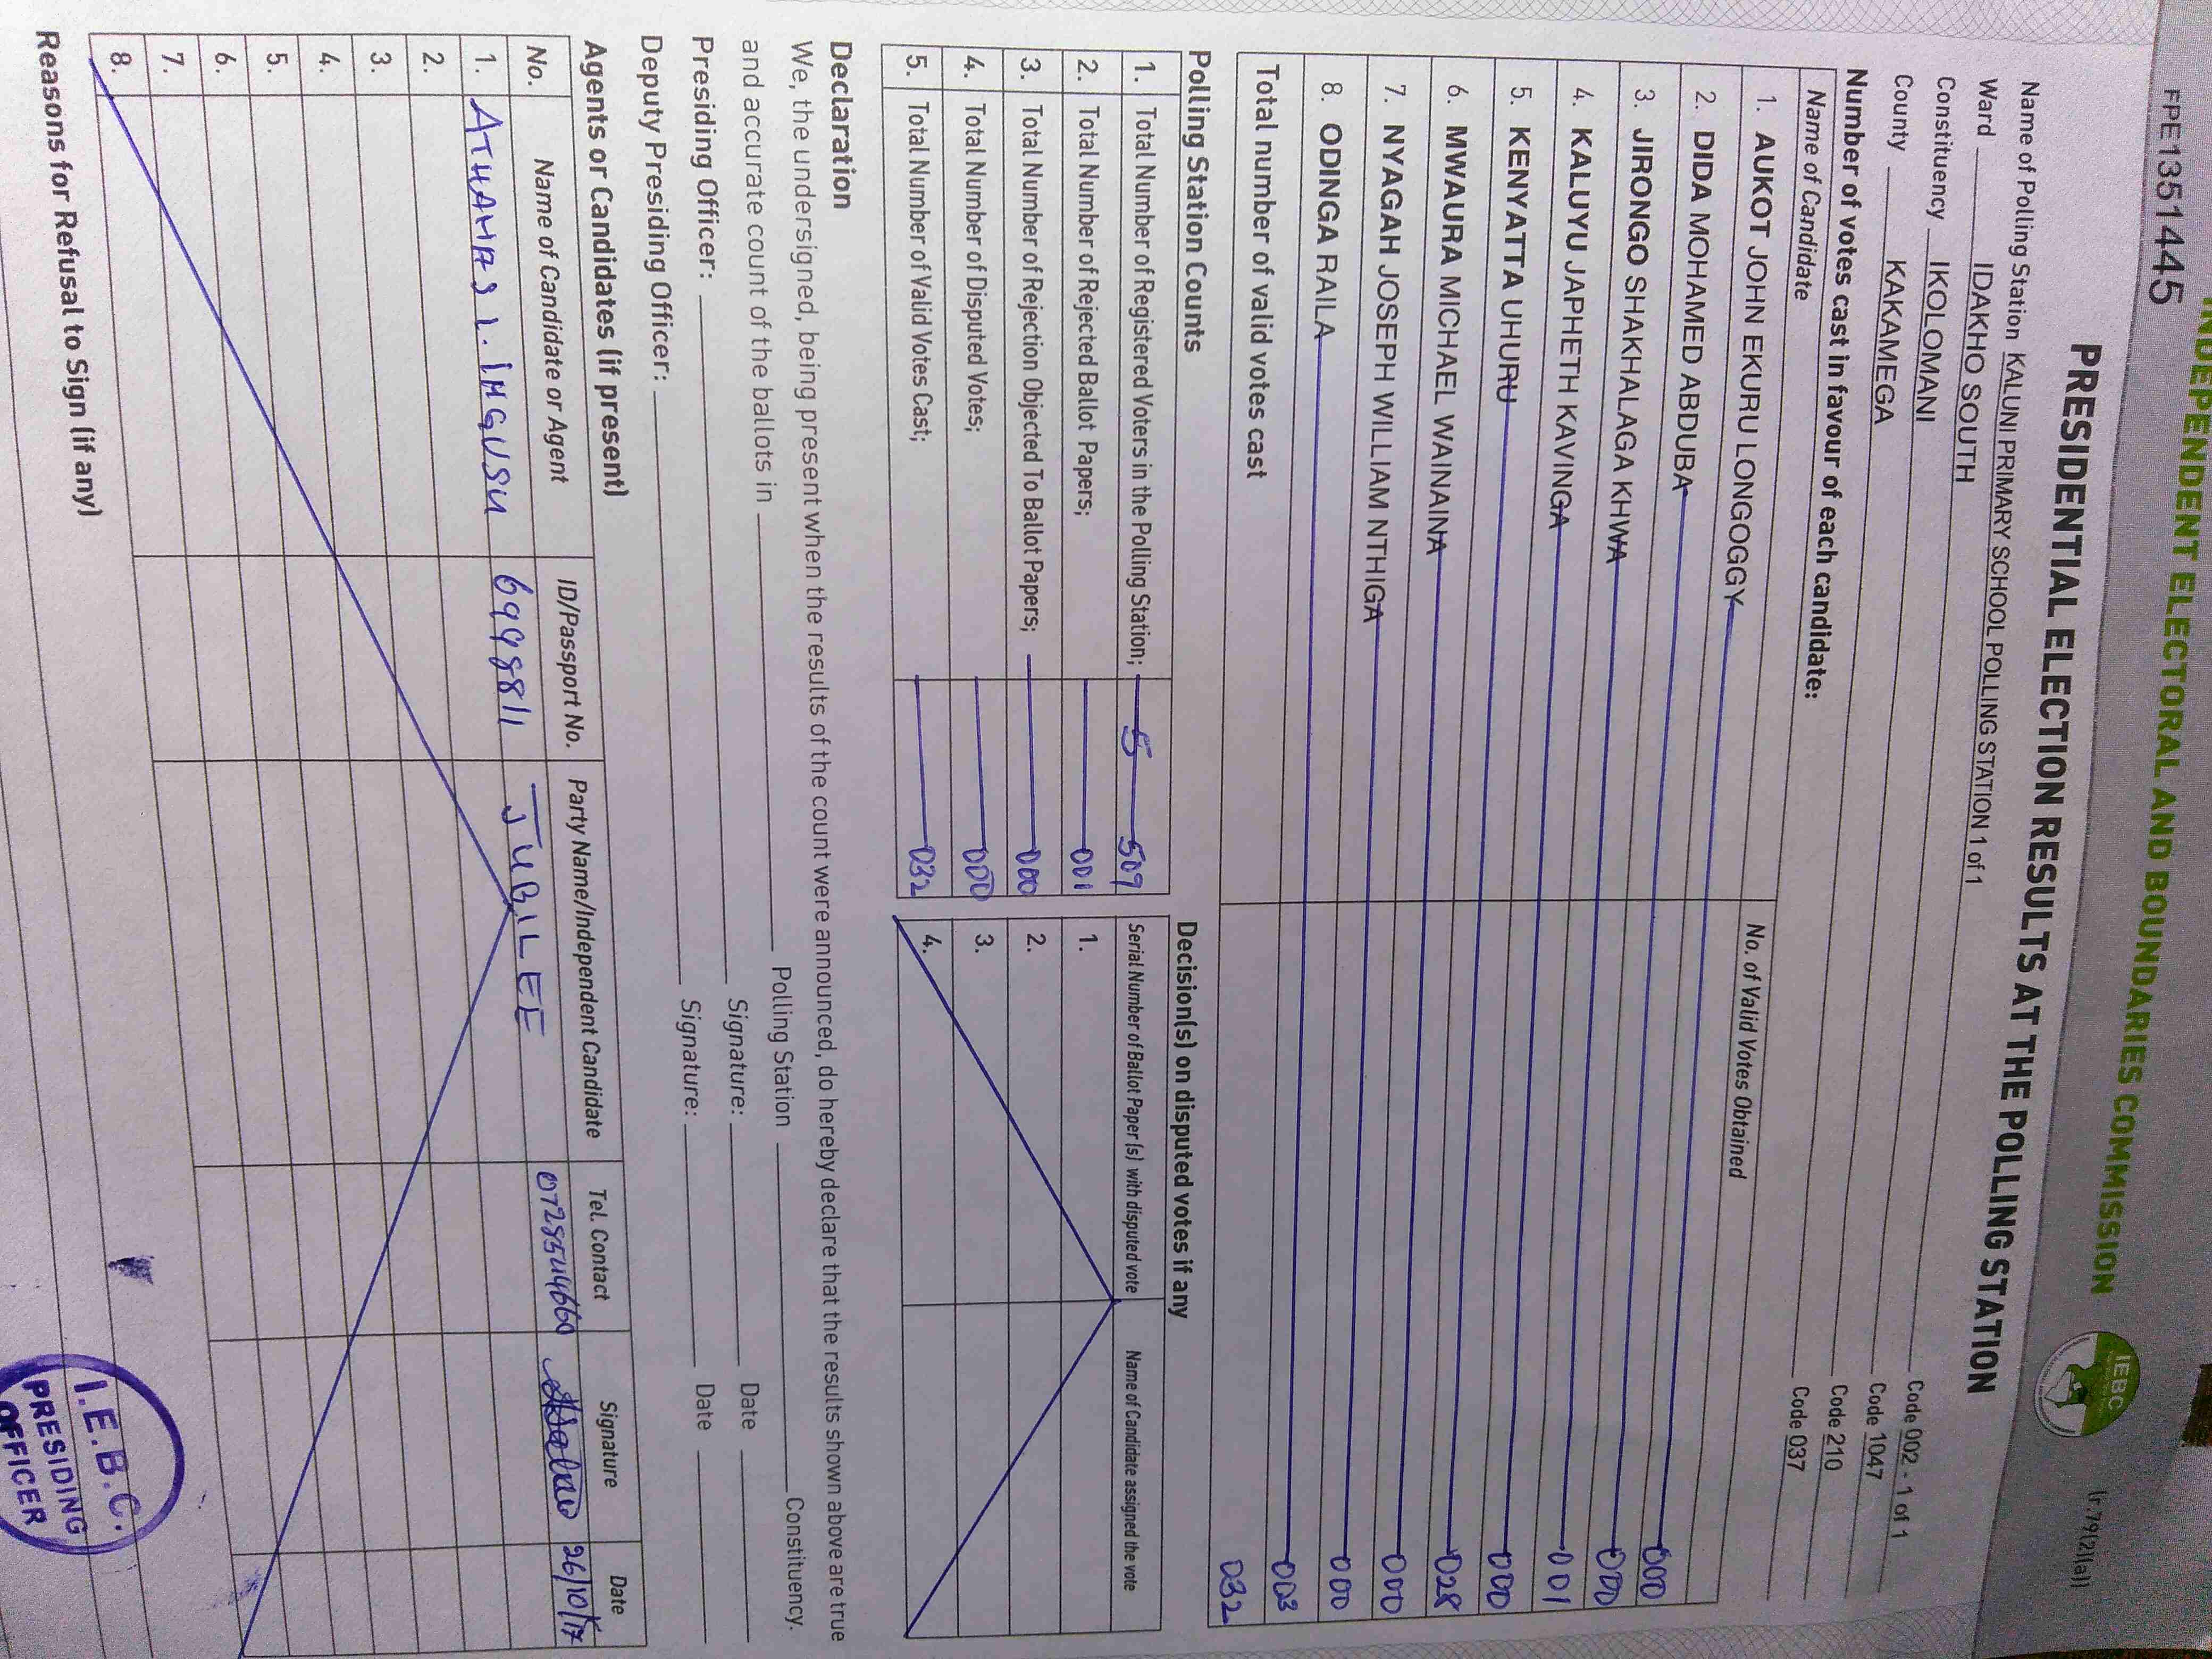 INDEPENDENT ELECTORAL AND BOUNDARIES COMMISSION
IEBC
(r.79(2)(a))
FPE1351445
PRESIDENTIAL ELECTION RESULTS AT THE POLLING STATION
Name of Polling Station KALUNI PRIMARY SCHOOL POLLING STATION 1 of 1 Code 002 - 1 of 1
Ward IDAKHO SOUTH Code 1047
Constituency IKOLOMANI Code 210
County KAKAMEGA Code 037
Number of votes cast in favour of each candidate:
Name of Candidate No. of Valid Votes Obtained
1. AUKOT JOHN EKURU LONGOGGY 000
2. DIDA MOHAMED ABDUBA 000
3. JIRONGO SHAKHALAGA KHWA 001
4. KALUYU JAPHETH KAVINGA 000
5. KENYATTA UHURU 028
6. MWAURA MICHAEL WAINAINA 000
7. NYAGAH JOSEPH WILLIAM NTHIGA 000
8. ODINGA RAILA 003
Total number of valid votes cast 032
Polling Station Counts
1. Total Number of Registered Voters in the Polling Station; 5 509
2. Total Number of Rejected Ballot Papers; 001
3. Total Number of Rejection Objected To Ballot Papers; 000
4. Total Number of Disputed Votes; 000
5. Total Number of Valid Votes Cast; 032
Decision(s) on disputed votes if any
Serial Number of Ballot Paper (s) with disputed vote Name of Candidate assigned the vote
1.
2.
3.
4.
Declaration
We, the undersigned, being present when the results of the count were announced, do hereby declare that the results shown above are true
and accurate count of the ballots in Polling Station Constituency.
Presiding Officer: Signature: Date
Deputy Presiding Officer: Signature: Date
Agents or Candidates (if present)
No. Name of Candidate or Agent ID/Passport No. Party Name/Independent Candidate Tel. Contact Signature Date
1. 6998811 JUBILEE 26/10/17
2.
3.
4.
5.
6.
7.
8.
Reasons for Refusal to Sign (if any)
I.E.B.C.
PRESIDING
OFFICER